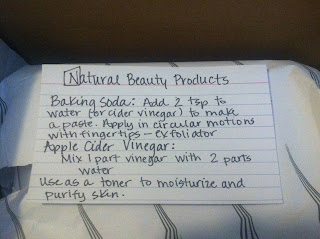 Natural Beauty Products
Baking Soda: Add 2 tsp to
water (or cider vinegar) to make
a paste. Apply in circular motions
with fingertips - exfoliator
Apple Cider Vinegar:
Mix 1 part vinegar with 2 parts
water
Use as a toner to moisturize and
purify skin.